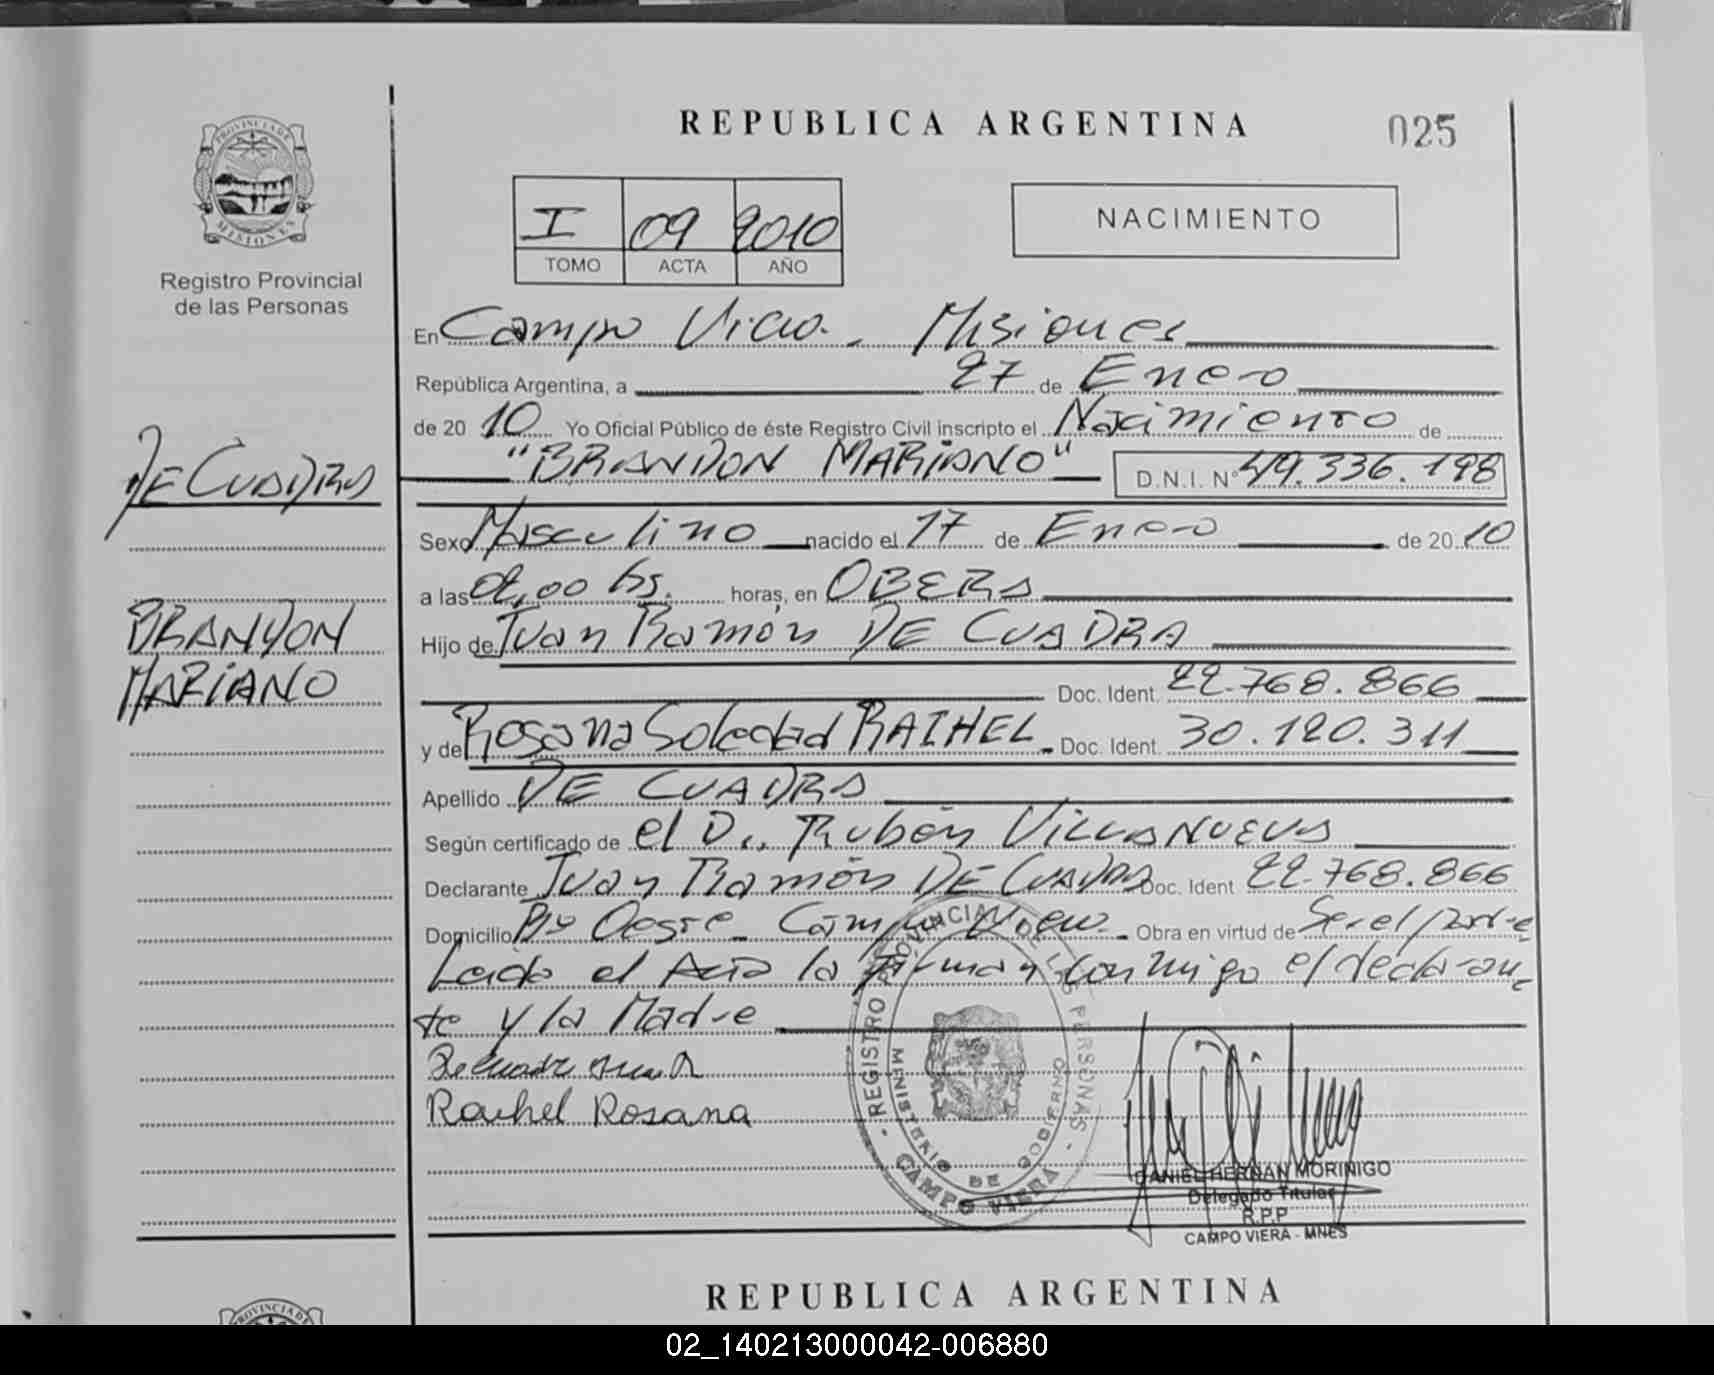 REPUBLICA ARGENTINA
025
PROVINCIA DE
MISIONES
Registro Provincial
de las Personas
I 09 2010
TOMO ACTA AÑO
NACIMIENTO
En Campo Viera. Misiones
República Argentina, a 27 de Enero
de 20 10 Yo Oficial Público de éste Registro Civil inscripto el Nacimiento de
"BRANDON MARIANO" D.N.I. Nº 49.336.198
DE CUADRA
Sexo Masculino nacido el 17 de Enero de 20 10
a las hs. horas, en OBERA
BRANDON
MARIANO
Hijo de Juan Ramón DE CUADRA
Doc. Ident. 22.768.866
y de Rosana Soledad RAIHEL Doc. Ident. 30.120.311
Apellido DE CUADRA
Según certificado de el Dr. Rubén VILLANUEVA
Declarante Juan Ramón DE CUADRA Doc. Ident 22.768.866
Domicilio Bº Oeste - Campo Viera - Obra en virtud de Ser el padre
Leida el Acta la firman conmigo el declaran
te y la Madre
De cuadra Juan R
Raihel Rosana
REGISTRO PROVINCIAL DE LAS PERSONAS
MINISTERIO DE GOBIERNO
CAMPO VIERA
DANIEL HERNAN MORINIGO
Delegado Titular
R.P.P
CAMPO VIERA - MNES
REPUBLICA ARGENTINA
PROVINCIA DE
02_140213000042-006880